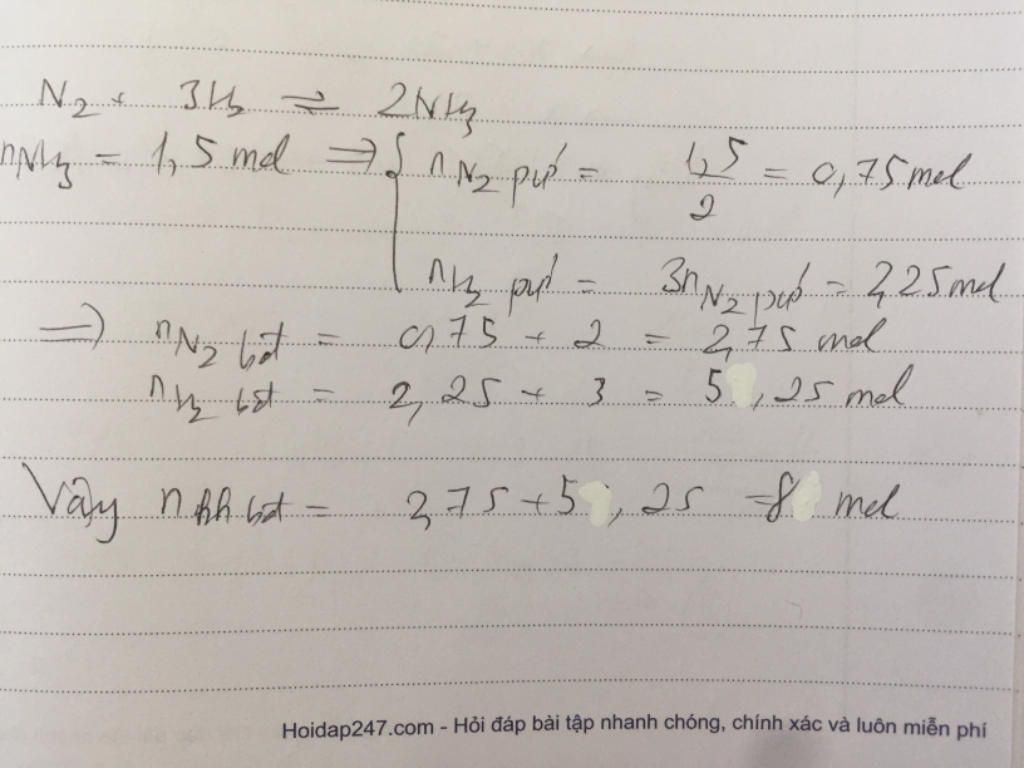 N₂ + 3H₂ ⇌ 2NH₃
nNH₃ = 1,5 mol ⇒ { nN₂ pứ = 1,5/2 = 0,75 mol
nH₂ pứ = 3nN₂ pứ = 2,25 mol
⇒ nN₂ bđ = 0,75 + 2 = 2,75 mol
nH₂ bđ = 2,25 + 3 = 5,25 mol
Vậy nhh bđ = 2,75 + 5,25 = 8 mol
Hoidap247.com - Hỏi đáp bài tập nhanh chóng, chính xác và luôn miễn phí